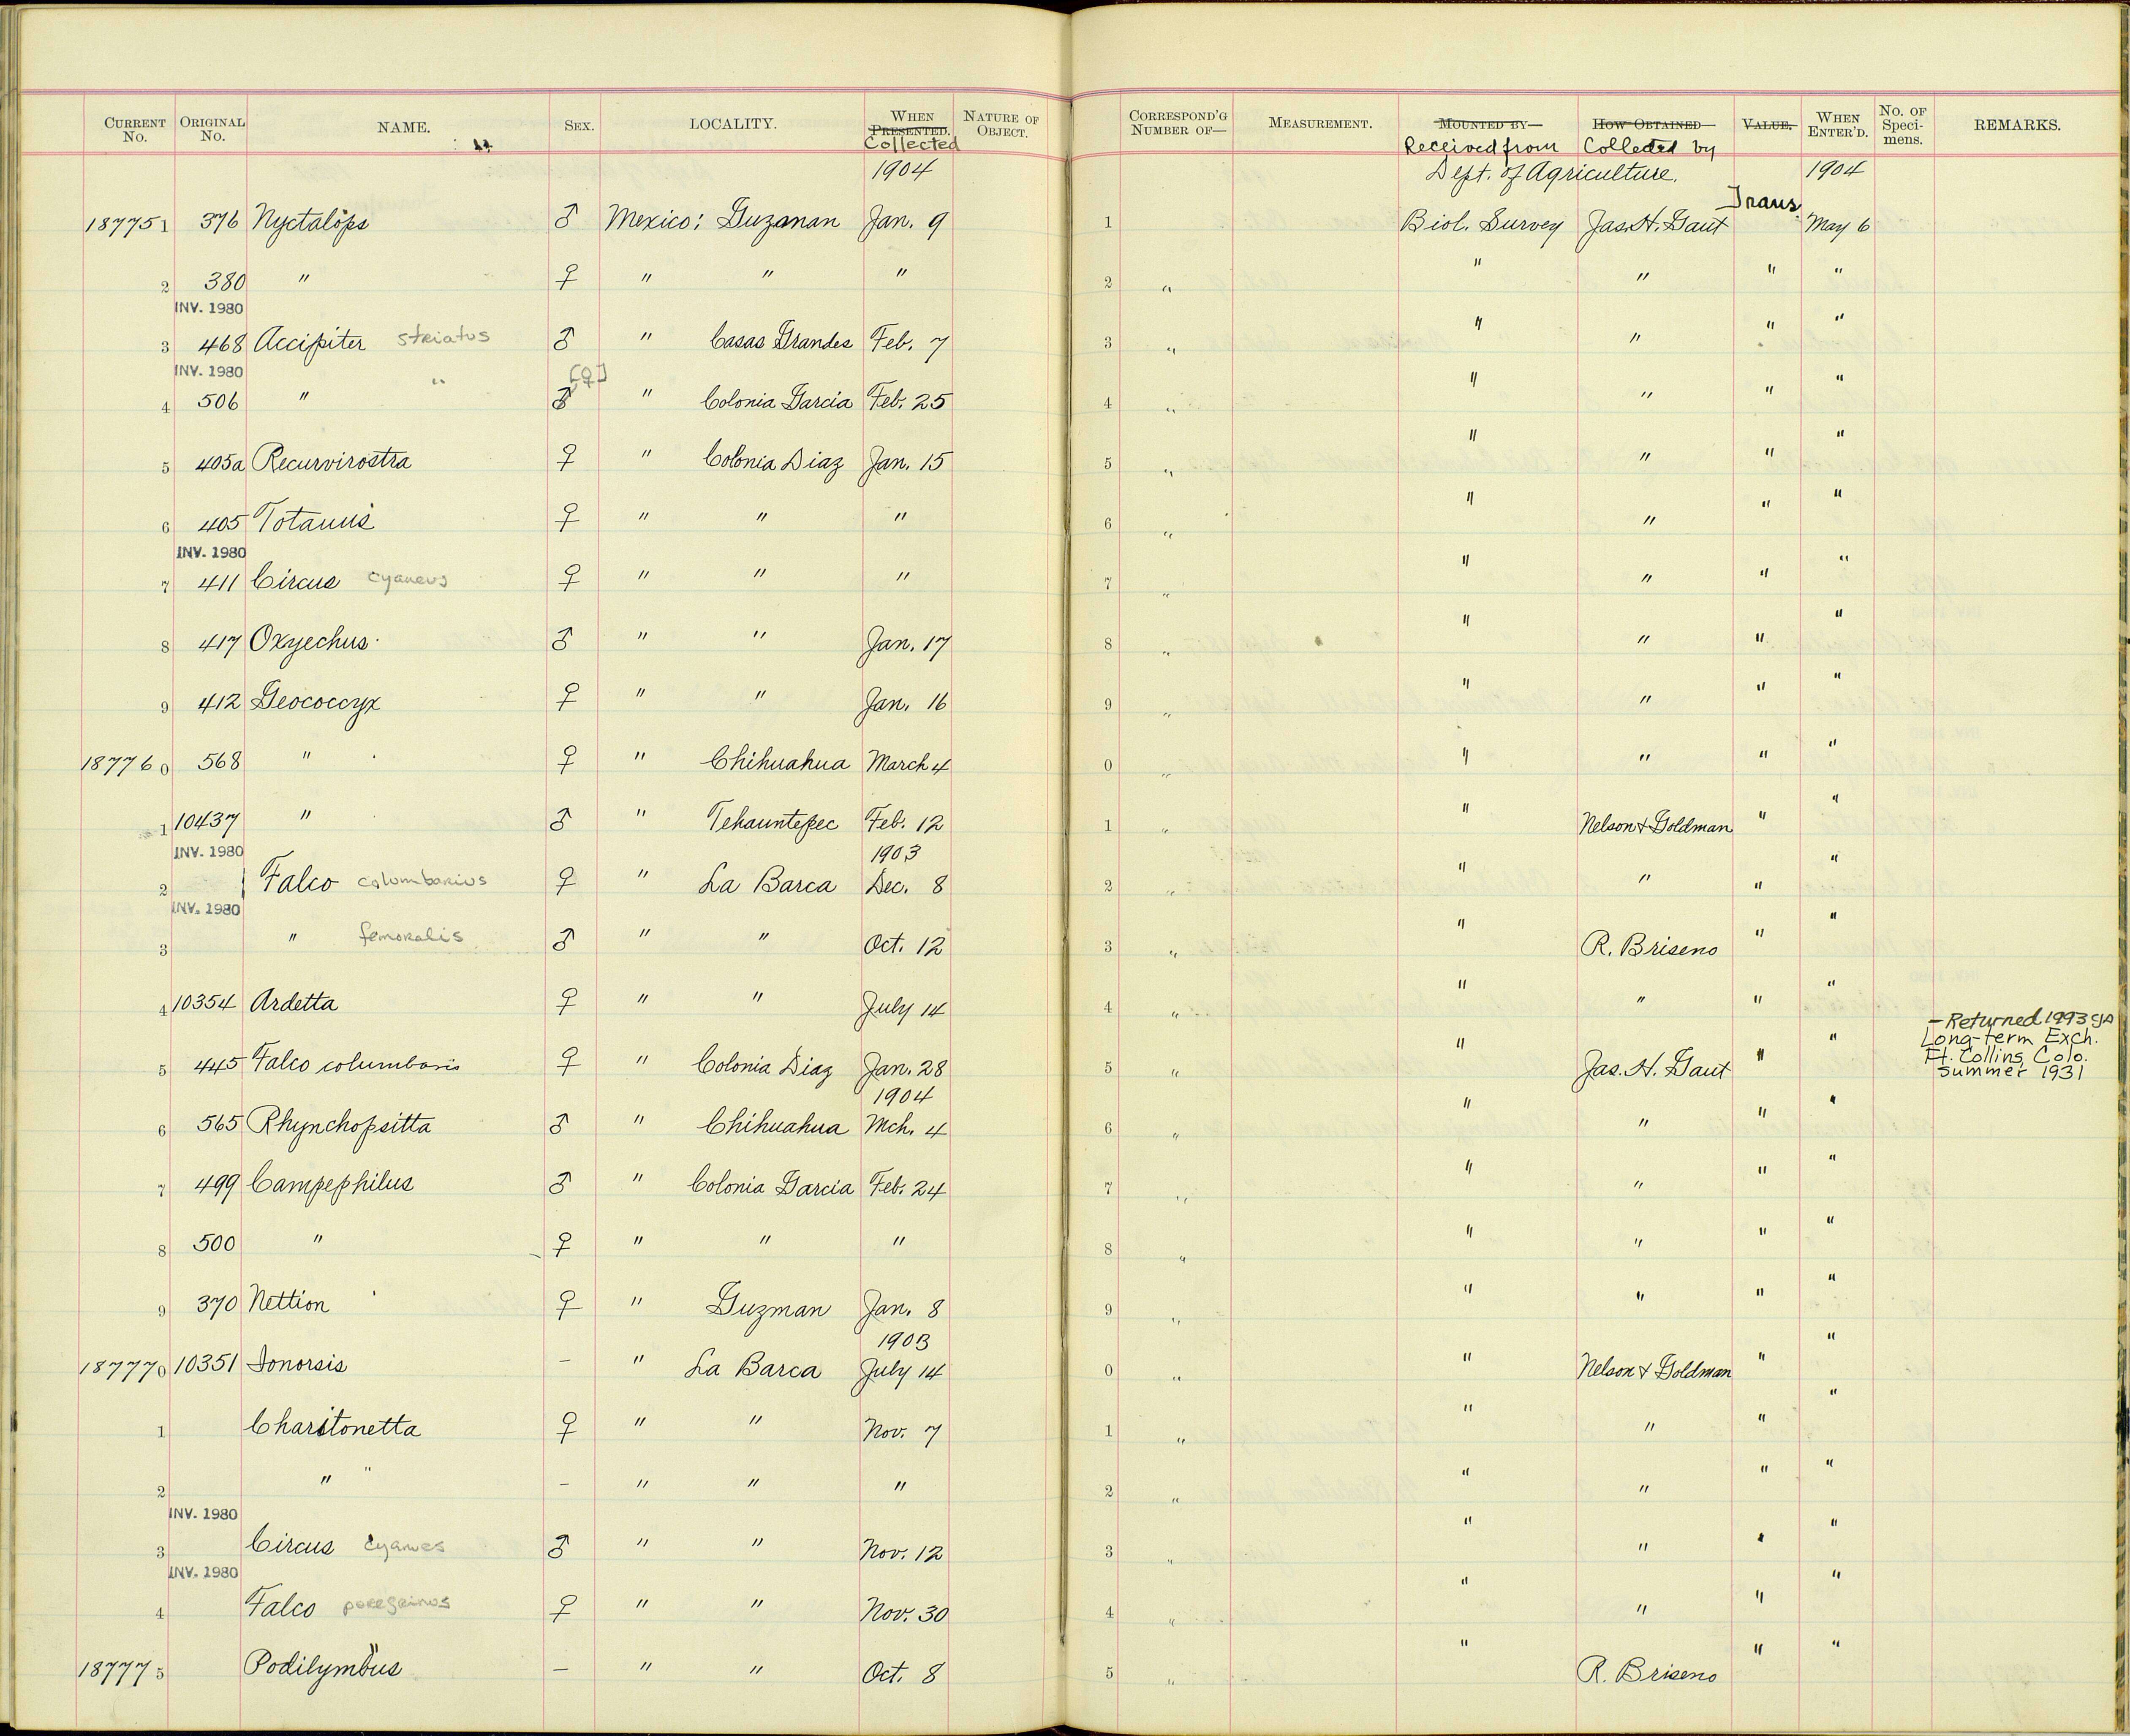 CURRENT No. ORIGINAL No. NAME. SEX. LOCALITY. WHEN PRESENTED. Collected NATURE OF OBJECT. CORRESPOND'G NUMBER OF— MEASUREMENT. MOUNTED BY— Received from HOW OBTAINED Collected by VALUE. WHEN ENTER'D. No. OF Speci-mens. REMARKS.
1904 Dept. of Agriculture. 1904
187751 376 Nyctalops ♂ Mexico: Guzman Jan. 9 1 Biol. Survey Jas. H. Gaut Trans. May 6
2 380 " ♀ " " " 2 " " " " "
INV. 1980
3 468 Accipiter striatus ♂ " Casas Grandes Feb. 7 3 " " " " "
INV. 1980
4 506 " " ♂ [♀] " Colonia Garcia Feb. 25 4 " " " " "
5 405a Recurvirostra ♀ " Colonia Diaz Jan. 15 5 " " " " "
6 405 Totanus ♀ " " " 6 " " " " "
INV. 1980
7 411 Circus cyaneus ♀ " " " 7 " " " " "
8 417 Oxyechus ♂ " " Jan. 17 8 " " " " "
9 412 Geococcyx ♀ " " Jan. 16 9 " " " " "
187760 568 " ♀ " Chihuahua March 4 0 " " " " "
1 10437 " ♂ " Tehauntepec Feb. 12 1 " " Nelson & Goldman " "
INV. 1980 1903
2 Falco columbarius ♀ " La Barca Dec. 8 2 " " " " "
INV. 1980
3 " femoralis ♂ " " Oct. 12 3 " " R. Briseno " "
4 10354 Ardetta ♀ " " July 14 4 " " " " "
5 445 Falco columbaris ♀ " Colonia Diaz Jan. 28 5 " " Jas. H. Gaut " " — Returned 1993
Long-term Exch.
Ft. Collins Colo.
summer 1931
1904
6 565 Rhynchopsitta ♂ " Chihuahua Mch. 4 6 " " " " "
7 499 Campephilus ♂ " Colonia Garcia Feb. 24 7 " " " " "
8 500 " ♀ " " " 8 " " " " "
9 370 Nettion ♀ " Guzman Jan. 8 9 " " " " "
1903
187770 10351 Ionorsis — " La Barca July 14 0 " " Nelson & Goldman " "
1 Charitonetta ♀ " " Nov. 7 1 " " " " "
2 " " — " " " 2 " " " " "
INV. 1980
3 Circus cyanues ♂ " " Nov. 12 3 " " " " "
INV. 1980
4 Falco peregrinus ♀ " " Nov. 30 4 " " " " "
187775 Podilymbus — " " Oct. 8 5 " " R. Briseno " "